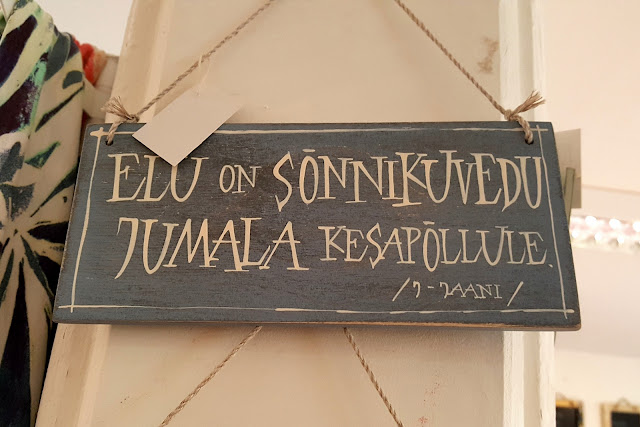 ELU ON SÕNNIKUVEDU
JUMALA KESAPÕLLULE.
/J-JAANI/